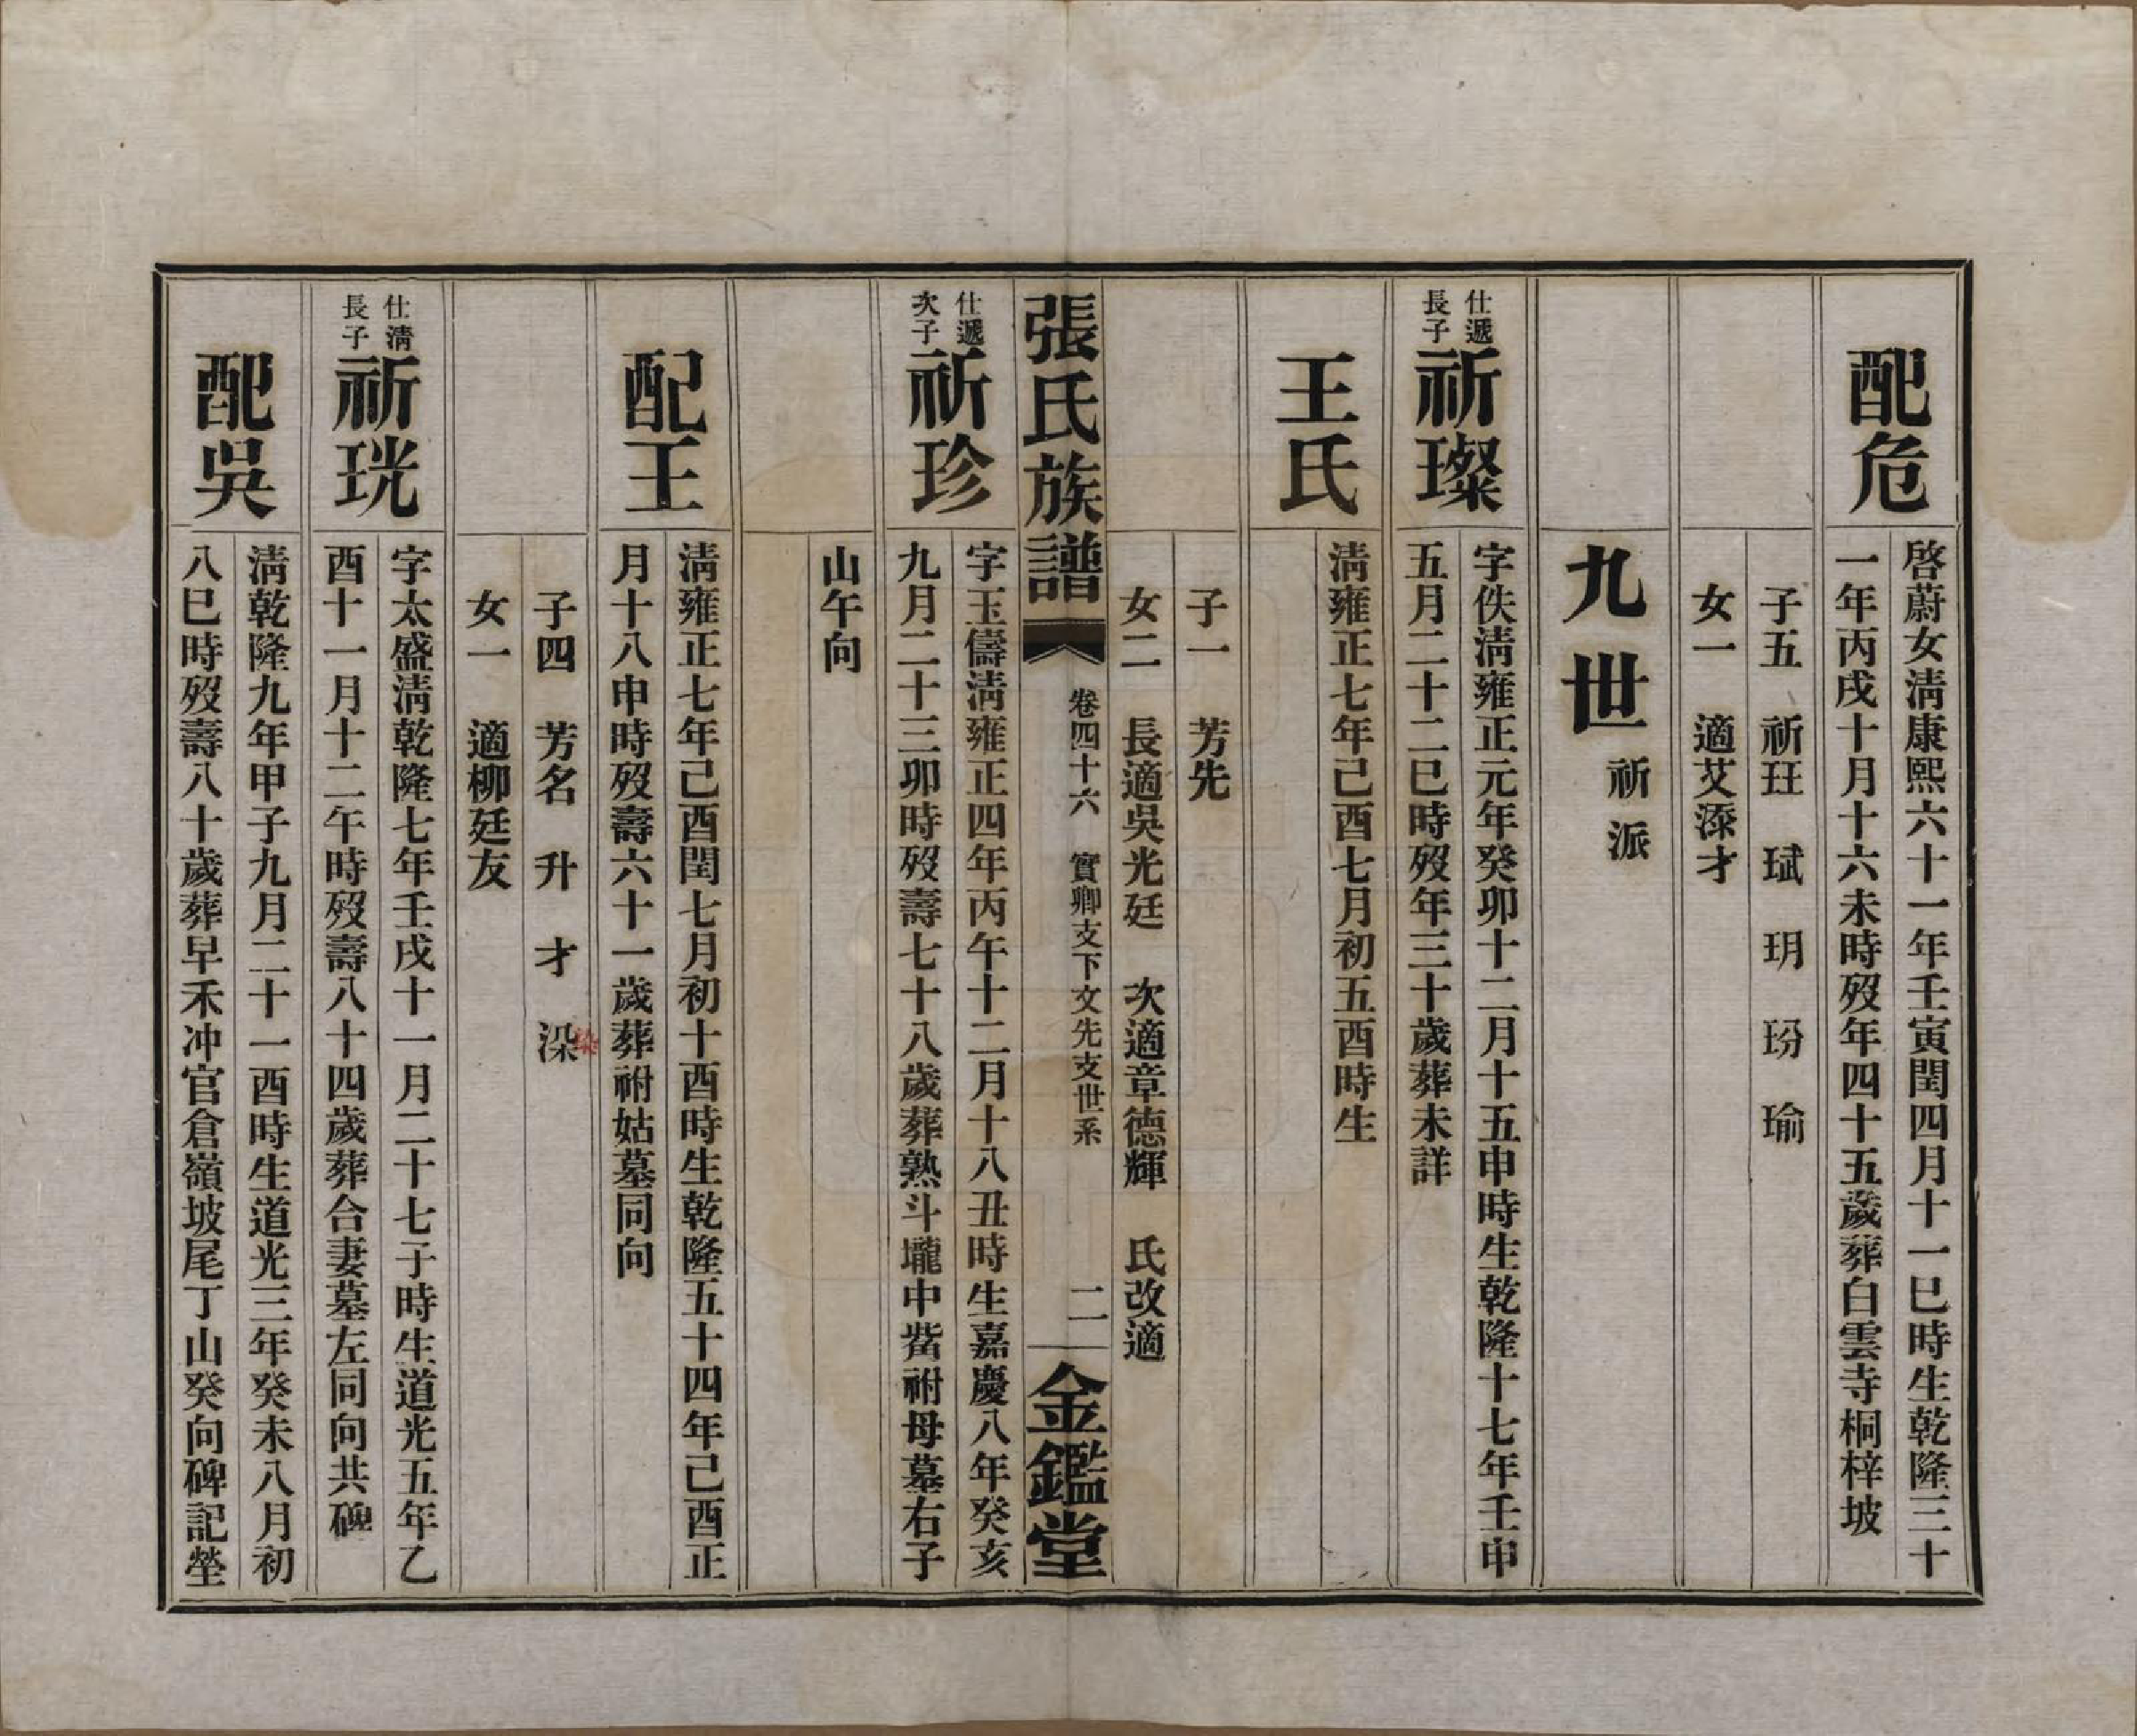 配危
啓蔚女淸康熙六十一年壬寅閏四月十一巳時生乾隆三十
一年丙戌十月十六未時歿年四十五歲葬白雲寺桐梓坡
子五 祈玨 珷 玥 玢 瑜
女一 適艾添才
九世 祈派
仕遞
長子
祈璨
字佚淸雍正元年癸卯十二月十五申時生乾隆十七年壬申
五月二十二巳時歿年三十歲葬未詳
王氏
淸雍正七年己酉七月初五酉時生
子一 芳先
女二 長適吳光廷 次適章德輝 氏改適
張氏族譜
卷四十六 實卿支下文先支世系
二
金鑑堂
仕遞
次子
祈珍
字玉儔淸雍正四年丙午十二月十八丑時生嘉慶八年癸亥
九月二十三卯時歿壽七十八歲葬熟斗壠中嵤祔母墓右子
山午向
配王
淸雍正七年己酉閏七月初十酉時生乾隆五十四年己酉正
月十八申時歿壽六十一歲葬祔姑墓同向
子四 芳名 升 才 染
染
女一 適柳廷友
仕淸
長子
祈珖
字太盛淸乾隆七年壬戌十一月二十七子時生道光五年乙
酉十一月十二午時歿壽八十四歲葬合妻墓左同向共碑
配吳
淸乾隆九年甲子九月二十一酉時生道光三年癸未八月初
八巳時歿壽八十歲葬早禾冲官倉嶺坡尾丁山癸向碑記塋